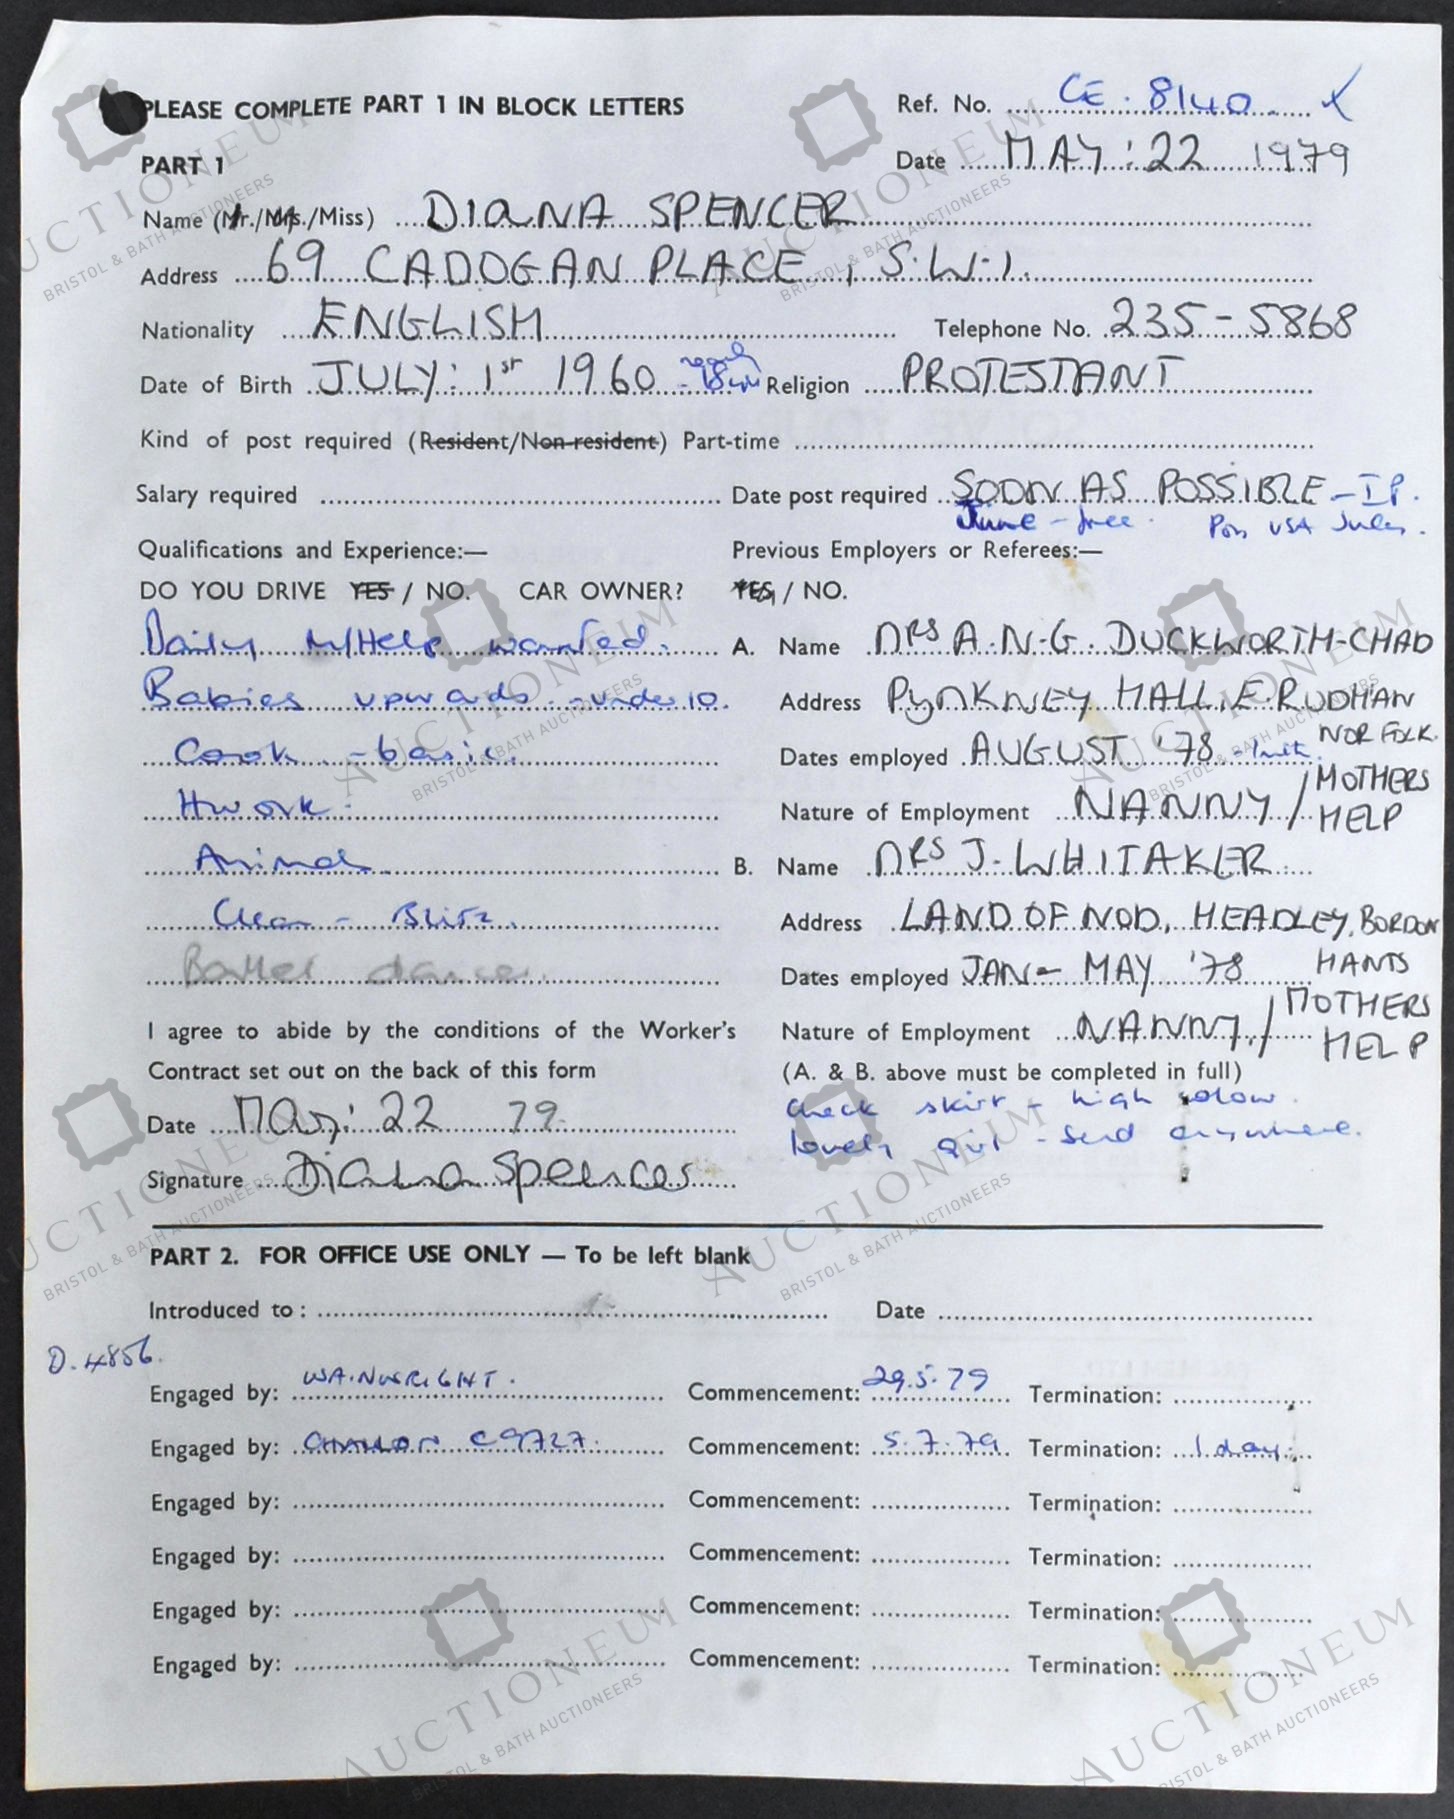 PLEASE COMPLETE PART 1 IN BLOCK LETTERS
Ref. No. CE. 8140
PART 1
Date MAY: 22 1979
Name (Mr./Mrs./Miss) DIANA SPENCER
Address 69 CADOGAN PLACE, S.W.1.
Nationality ENGLISH Telephone No. 235-5868
Date of Birth JULY: 1st 1960 Religion PROTESTANT
Kind of post required (Resident/Non-resident) Part-time
Salary required Date post required SOON AS POSSIBLE - I P.
June - free. Poss USA July.
Qualifications and Experience:— Previous Employers or Referees:—
DO YOU DRIVE YES / NO. CAR OWNER? YES / NO.
Daily M/Help wanted. A. Name MRS A.N.G. DUCKWORTH-CHAD
Babies upwards - under 10. Address PYNKNEY HALL, E. RUDHAN
NORFOLK.
Cook - basic. Dates employed AUGUST '78 - 1mth
Hwork. Nature of Employment NANNY / MOTHERS HELP
Animals B. Name MRS J. WHITAKER
Clean - Blitz. Address LAND OF NOD, HEADLEY, BORDON
HANTS
Ballet dancer Dates employed JAN - MAY '78
I agree to abide by the conditions of the Worker's Nature of Employment NANNY / MOTHERS HELP
Contract set out on the back of this form (A. & B. above must be completed in full)
check skirt - high colour.
Date May: 22 79.
lovely girl - send anywhere.
Signature Diana Spencer
PART 2. FOR OFFICE USE ONLY — To be left blank
Introduced to: Date
D. 4856.
Engaged by: WAINWRIGHT. Commencement: 29.5.79 Termination:
Engaged by: CHALLON C9727. Commencement: 5.7.79 Termination: 1 day.
Engaged by: Commencement: Termination:
Engaged by: Commencement: Termination:
Engaged by: Commencement: Termination:
Engaged by: Commencement: Termination:
AUCTIONEUM
BRISTOL & BATH AUCTIONEERS